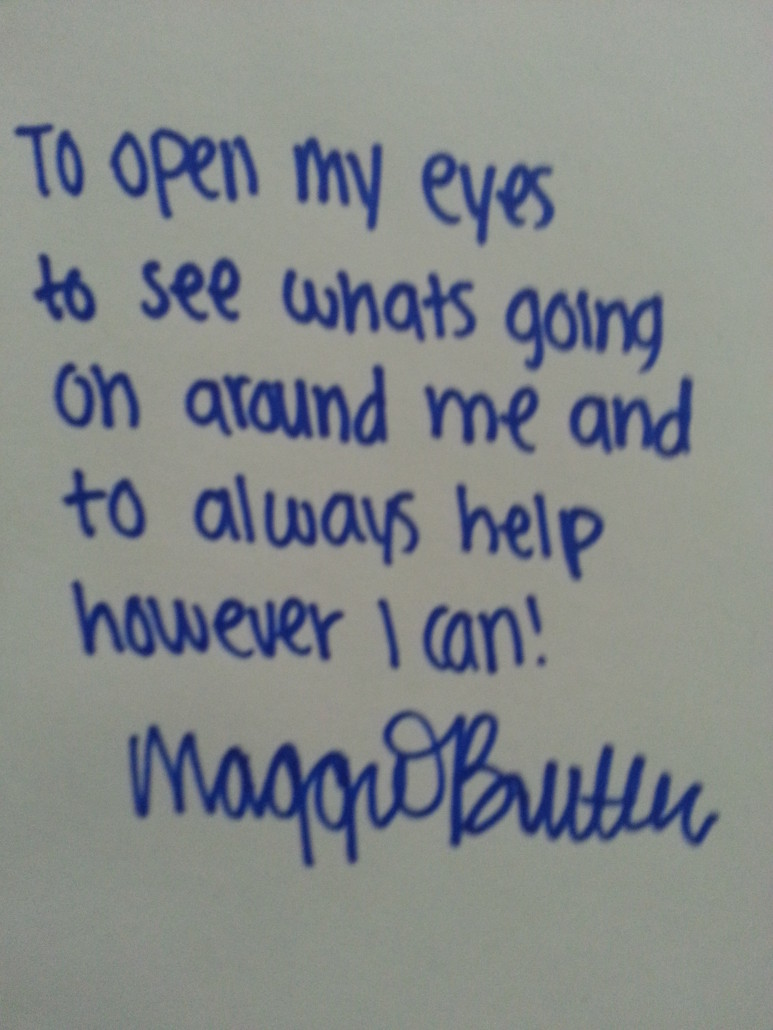 To open my eyes
to see whats going
on around me and
to always help
however I can!
Maggie